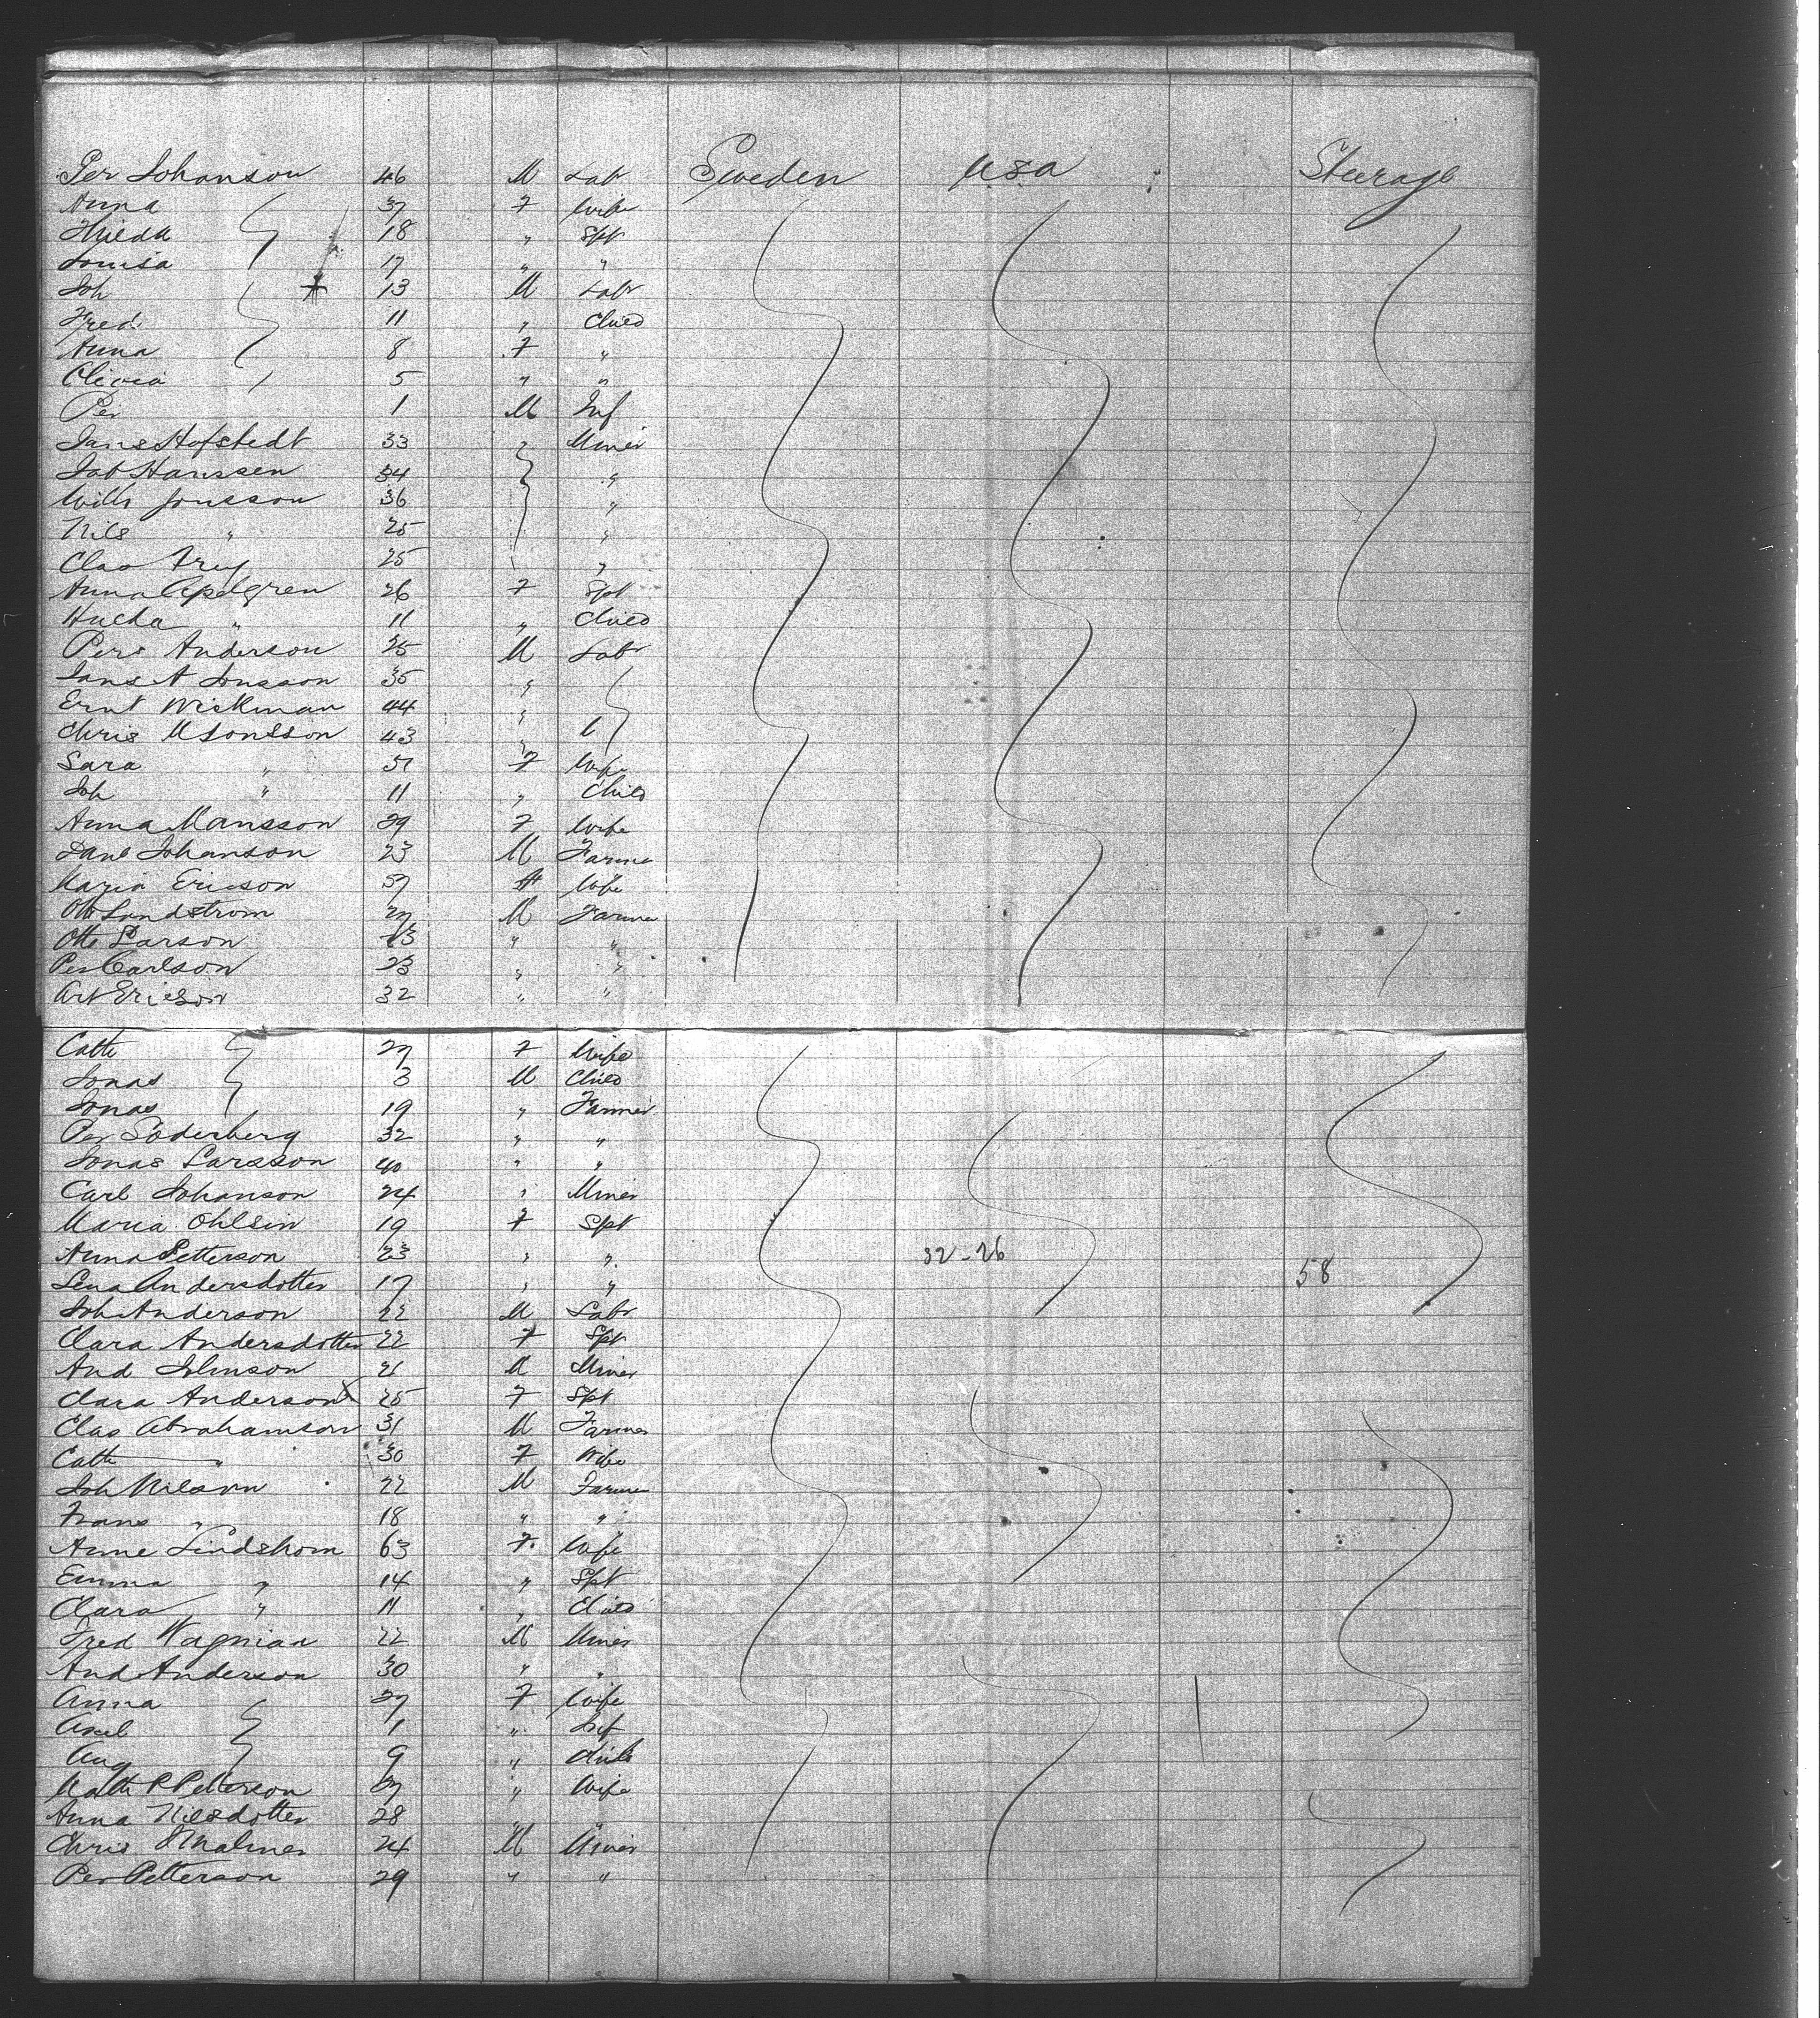 Per Johanson 46 M Labr Sweden USA Steerage
Anna 37 F Wife
Hilda 18 " Spt
Louisa 17 " "
Joh 13 M Labr
Fred 11 " Child
Anna 8 F "
Olivia 5 " "
Per 1 M Inf
Jans Hofstedt 33 " Miner
Jab Hanssen 34 "
Wilh Jonsson 36 "
Nils " 25 "
Clas Frey 25 "
Anna Apelgren 26 F Spt
Hulda " 11 " Child
Pers Anderson 25 M Labr
Jans A Jonsson 35 "
Ernt Wickman 44 "
Chris M Jonsson 43 "
Sara " 51 F Wife
Joh " 11 " Child
Anna Mansson 29 F Wife
Johanson 23 M Farmer
Maria Ericson 57 Wife
Otto Lundstrom 27 M Farmer
Otto Larson 23 " "
Per Carlson 23 " "
Art Ericson 32 " "
Cath 27 F Wife
Jonas 3 M Child
Jonas 19 " Farmer
Per Soderberg 32 " "
Jonas Larsson 40 " "
Carl Johanson 24 " Miner
Maria Ohlsin 19 F Spt
Anna Petterson 23 " " 32-26
Lena Andersdotter 17 " " 58
Joh Anderson 22 M Labr
Clara Andersdotter 22 F Spt
And Johnson 21 M Miner
Clara Anderson X 25 F Spt
Clas Abrahamson 31 M Farmer
Cath " 30 F Wife
Joh Nilson 22 M Farmer
Frans " 18 " "
Anne Lindshom 63 F. Wife
Emma " 14 " Spt
Clara " 11 " Child
Fred Wagman 22 M Miner
And Anderson 30 " "
Anna 27 F Wife
Axel 1 " Inf
Aug 9 " Child
Math P Petterson 37 " Wife
Anna Nilsdotter 28 " "
Chris Malmer 24 M Miner
Per Petterson 29 " "